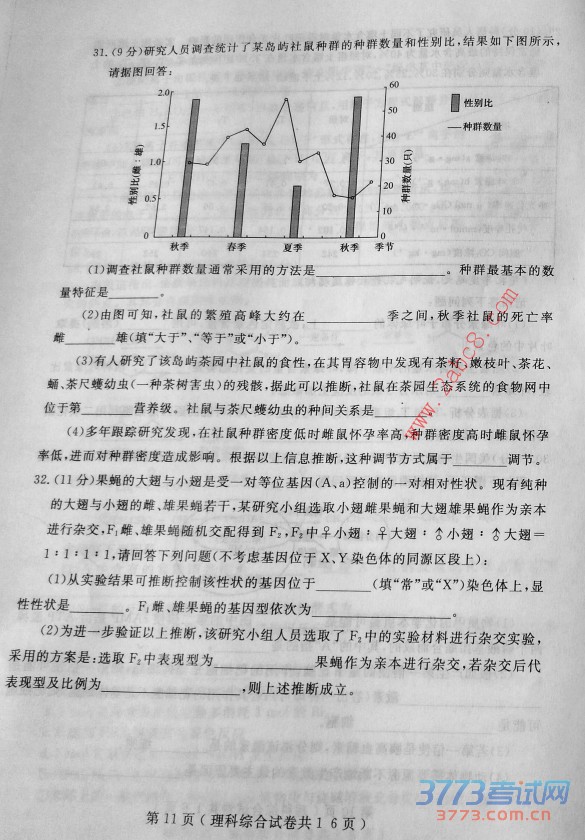 31.(9分)研究人员调查统计了某岛屿社鼠种群的种群数量和性别比,结果如下图所示,
请据图回答:
2.0
1.5
1.0
0.5
0
性别比(雌:雄)
60
50
40
30
20
10
0
种群数量(只)
性别比
种群数量
秋季 春季 夏季 秋季 季节
(1)调查社鼠种群数量通常采用的方法是________。种群最基本的数
量特征是________。
(2)由图可知,社鼠的繁殖高峰大约在________季之间,秋季社鼠的死亡率
雌________雄(填“大于”、“等于”或“小于”)。
(3)有人研究了该岛屿茶园中社鼠的食性,在其胃容物中发现有茶籽、嫩枝叶、茶花、
蛹、茶尺蠖幼虫(一种茶树害虫)的残骸,据此可以推断,社鼠在茶园生态系统的食物网中
位于第________营养级。社鼠与茶尺蠖幼虫的种间关系是________
(4)多年跟踪研究发现,在社鼠种群密度低时雌鼠怀孕率高,种群密度高时雌鼠怀孕
率低,进而对种群密度造成影响。根据以上信息推断,这种调节方式属于________调节。
32.(11分)果蝇的大翅与小翅是受一对等位基因(A、a)控制的一对相对性状。现有纯种
的大翅与小翅的雌、雄果蝇若干,某研究小组选取小翅雌果蝇和大翅雄果蝇作为亲本
进行杂交,F₁雌、雄果蝇随机交配得到F₂,F₂中♀小翅:♀大翅:♂小翅:♂大翅=
1:1:1:1,请回答下列问题(不考虑基因位于X、Y染色体的同源区段上):
(1)从实验结果可推断控制该性状的基因位于________(填“常”或“X”)染色体上,显
性性状是________。F₁雌、雄果蝇的基因型依次为________。
(2)为进一步验证以上推断,该研究小组人员选取了F₂中的实验材料进行杂交实验,
采用的方案是:选取F₂中表现型为________果蝇作为亲本进行杂交,若杂交后代
表现型及比例为________,则上述推断成立。
第11页(理科综合试卷共16页)
3773考试网
3773.com.cn